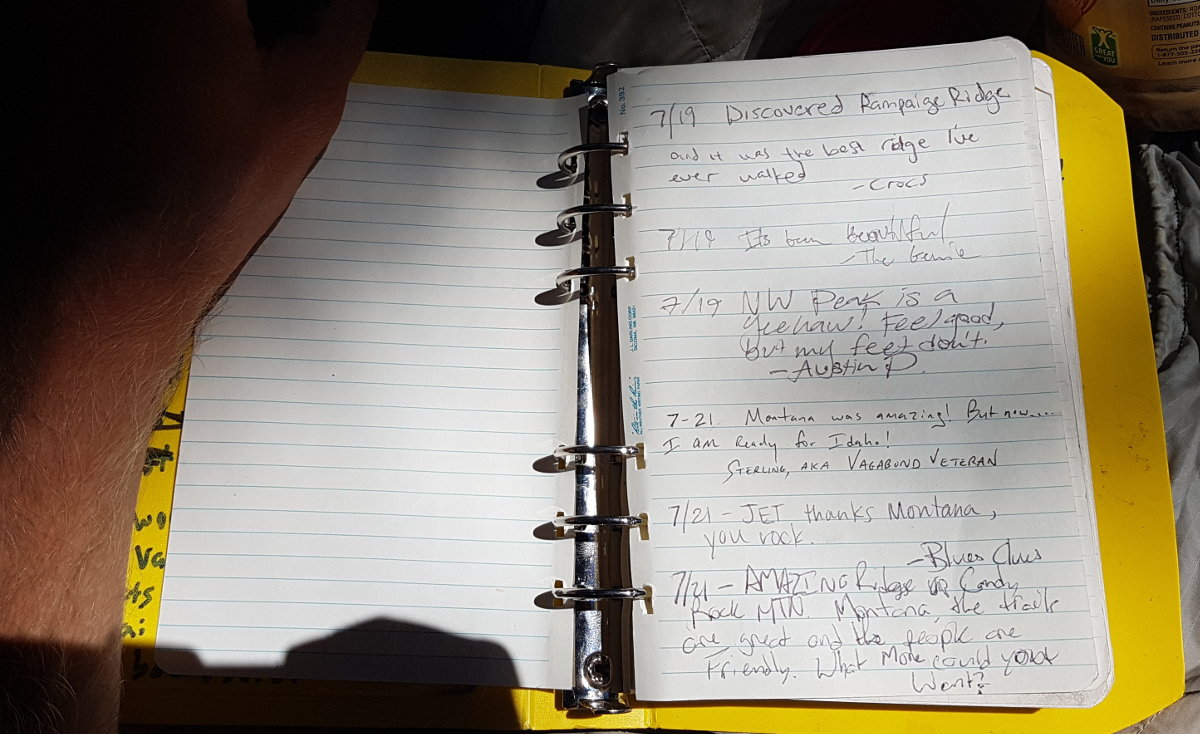 7/19 Discovered Rampaige Ridge
and it was the best ridge I've
ever walked
- Crocs
7/19 Its been Beautiful
- The Genie
7/19 NW Peak is a
Yeehaw! Feel good,
but my feet don't.
- Austin P.
7-21 Montana was amazing! But now....
I am Ready for Idaho!
STERLING, AKA VAGABOND VETERAN
7/21 - JET thanks Montana,
you rock.
- Blues Clues
7/21 - AMAZING Ridge up Candy
Rock MTN. Montana, the trails
are great and the people are
Friendly. What More could you
Want?
No. 392
J. L. DARLING CORP.
TACOMA, WA
GREAT
YOU
INGREDIENTS:
CONTAINS PEANUTS
DISTRIBUTED
Return the
Learn more
wo
Va
ts